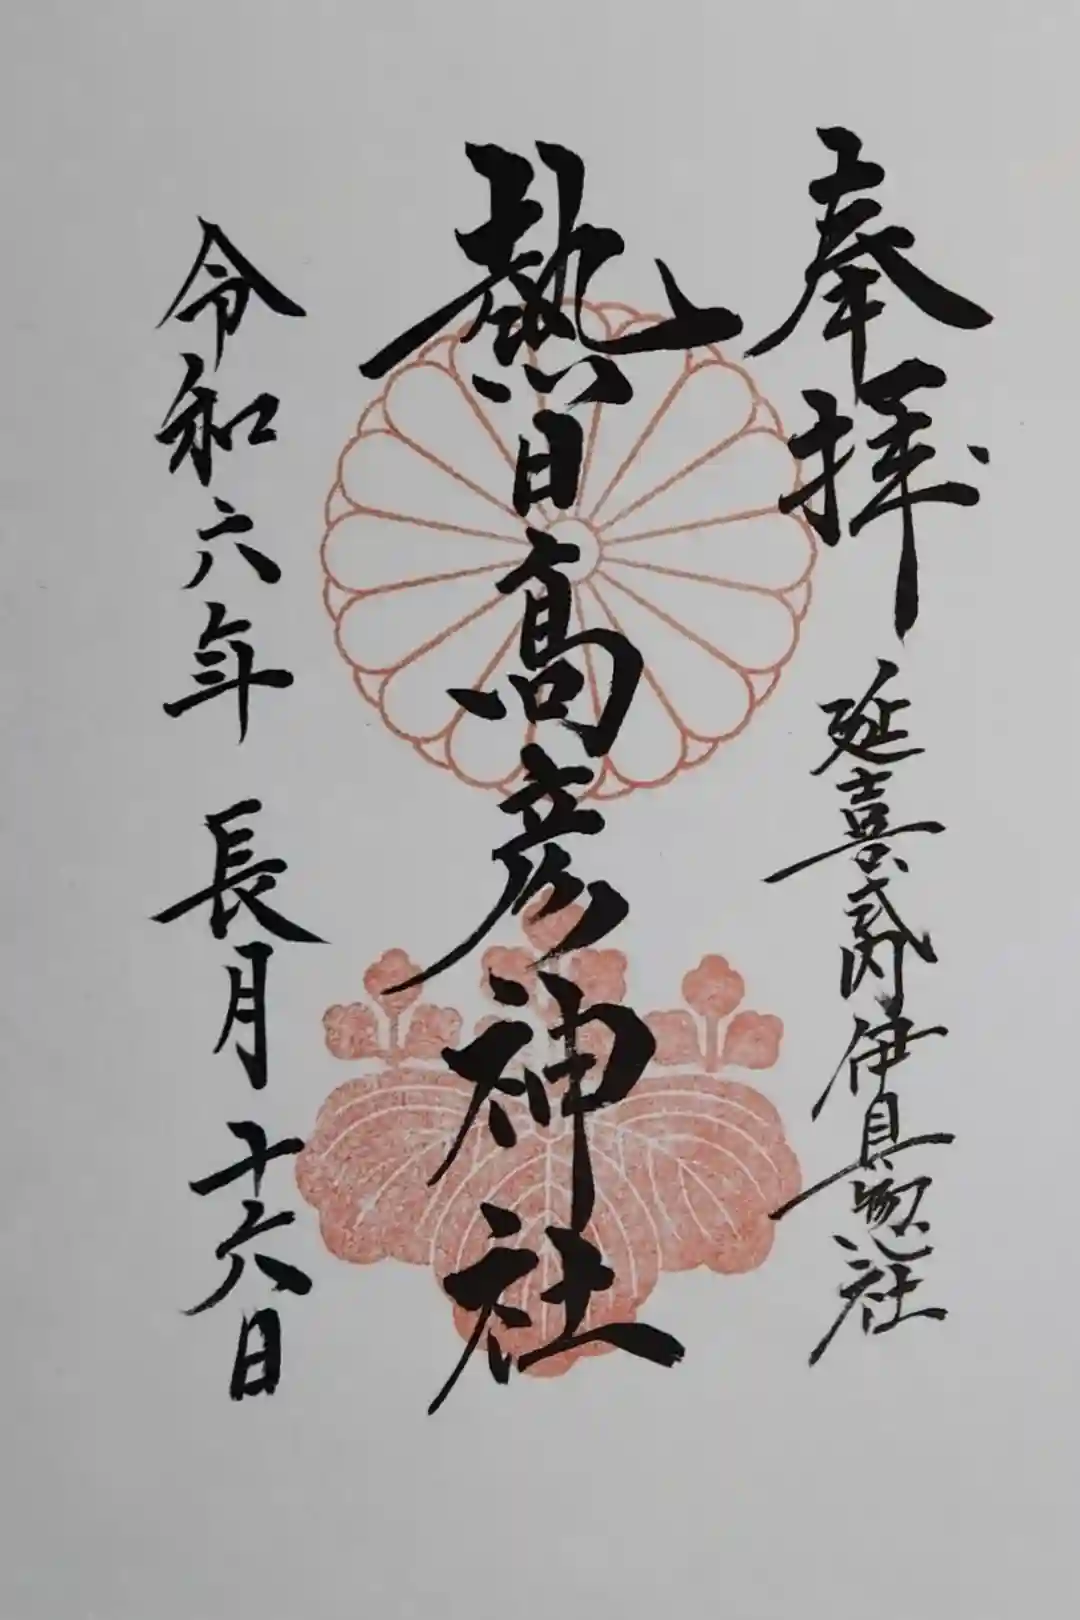 奉拝
延喜式内伊具惣社
熱日高彦神社
令和六年長月十六日